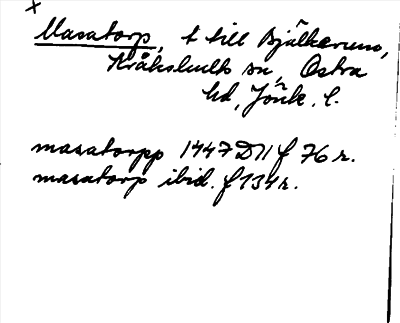 x
Masatorp, t till Bjälkerum,
Kråkshults sn, Östra
hd, Jönk. l.
masatorpp 1447 D 11 f 76 r.
masatorp ibid. f 134 r.